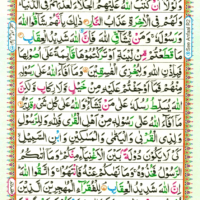 وَلَوْلَآ اَنْ كَتَبَ اللّٰهُ عَلَيْهِمُ الْجَلَآءَ لَعَذَّبَهُمْ فِي الدُّنْيَا
وَلَهُمْ فِي الْاٰخِرَةِ عَذَابُ النَّارِ ذٰلِكَ بِاَنَّهُمْ شَآقُّوا اللّٰهَ
وَرَسُوْلَهٗ وَمَنْ يُّشَآقِّ اللّٰهَ فَاِنَّ اللّٰهَ شَدِيْدُ الْعِقَابِ
مَا قَطَعْتُمْ مِّنْ لِّيْنَةٍ اَوْ تَرَكْتُمُوْهَا قَآئِمَةً عَلٰٓى اُصُوْلِهَا
فَبِاِذْنِ اللّٰهِ وَلِيُخْزِيَ الْفٰسِقِيْنَ وَمَآ اَفَآءَ اللّٰهُ عَلٰى رَسُوْلِهٖ
مِنْهُمْ فَمَآ اَوْجَفْتُمْ عَلَيْهِ مِنْ خَيْلٍ وَّلَا رِكَابٍ وَّلٰكِنَّ
اللّٰهَ يُسَلِّطُ رُسُلَهٗ عَلٰى مَنْ يَّشَآءُ وَاللّٰهُ عَلٰى كُلِّ شَيْءٍ قَدِيْرٌ
مَآ اَفَآءَ اللّٰهُ عَلٰى رَسُوْلِهٖ مِنْ اَهْلِ الْقُرٰى فَلِلّٰهِ وَلِلرَّسُوْلِ
وَلِذِي الْقُرْبٰى وَالْيَتٰمٰى وَالْمَسٰكِيْنِ وَابْنِ السَّبِيْلِ
كَيْ لَا يَكُوْنَ دُوْلَةًۢ بَيْنَ الْاَغْنِيَآءِ مِنْكُمْ وَمَآ اٰتٰىكُمُ
الرَّسُوْلُ فَخُذُوْهُ وَمَا نَهٰىكُمْ عَنْهُ فَانْتَهُوْا وَاتَّقُوا اللّٰهَ
اِنَّ اللّٰهَ شَدِيْدُ الْعِقَابِ لِلْفُقَرَآءِ الْمُهٰجِرِيْنَ الَّذِيْنَ